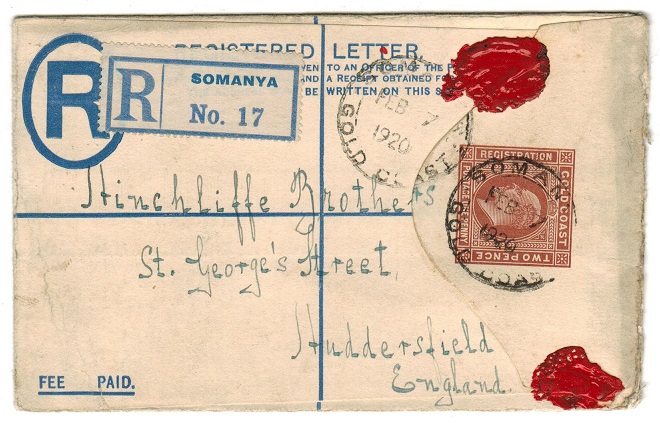 REGISTERED LETTER.
TO AN OFFICER OF THE
AND A RECEIPT OBTAINED
BE WRITTEN ON THIS
R
R
SOMANYA
No. 17
FEB 7
1920
GOLD
Hinchliffe Brothers
St. George's Street,
Huddersfield
England.
FEE PAID.
REGISTRATION
GOLD COAST
TWO PENCE
SOMAN
FEB 7
1920
GOLD
COAST